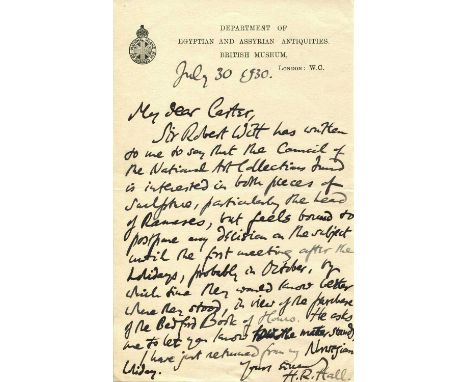 DEPARTMENT OF
EGYPTIAN AND ASSYRIAN ANTIQUITIES.
BRITISH MUSEUM,
LONDON: W.C.
July 30 1930.
My dear Carter,
Sir Robert Witt has written
to me to say that the Council of
the National Art Collections Fund
is interested in both pieces of
sculpture, particularly the head
of Rameses, but feels bound to
postpone any decision on the subject
until the first meeting after the
holidays, probably in October, by
which time they would know better
where they stood, in view of the purchase
of the Bedford Book of Hours. He asks
me to let you know the matter stands
I have just returned from my Norwegian
holiday.
Yours ever
H. R. Hall